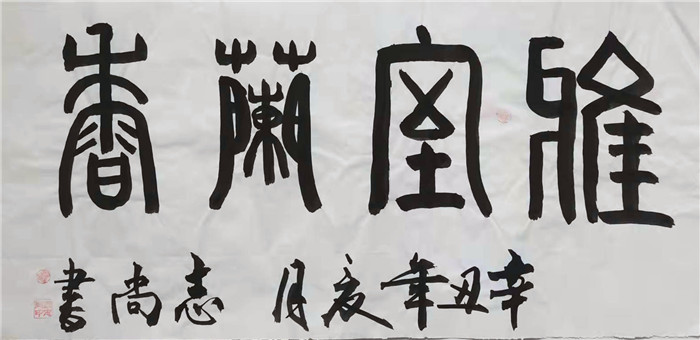 雅室蘭香
辛丑年夏月志尚書